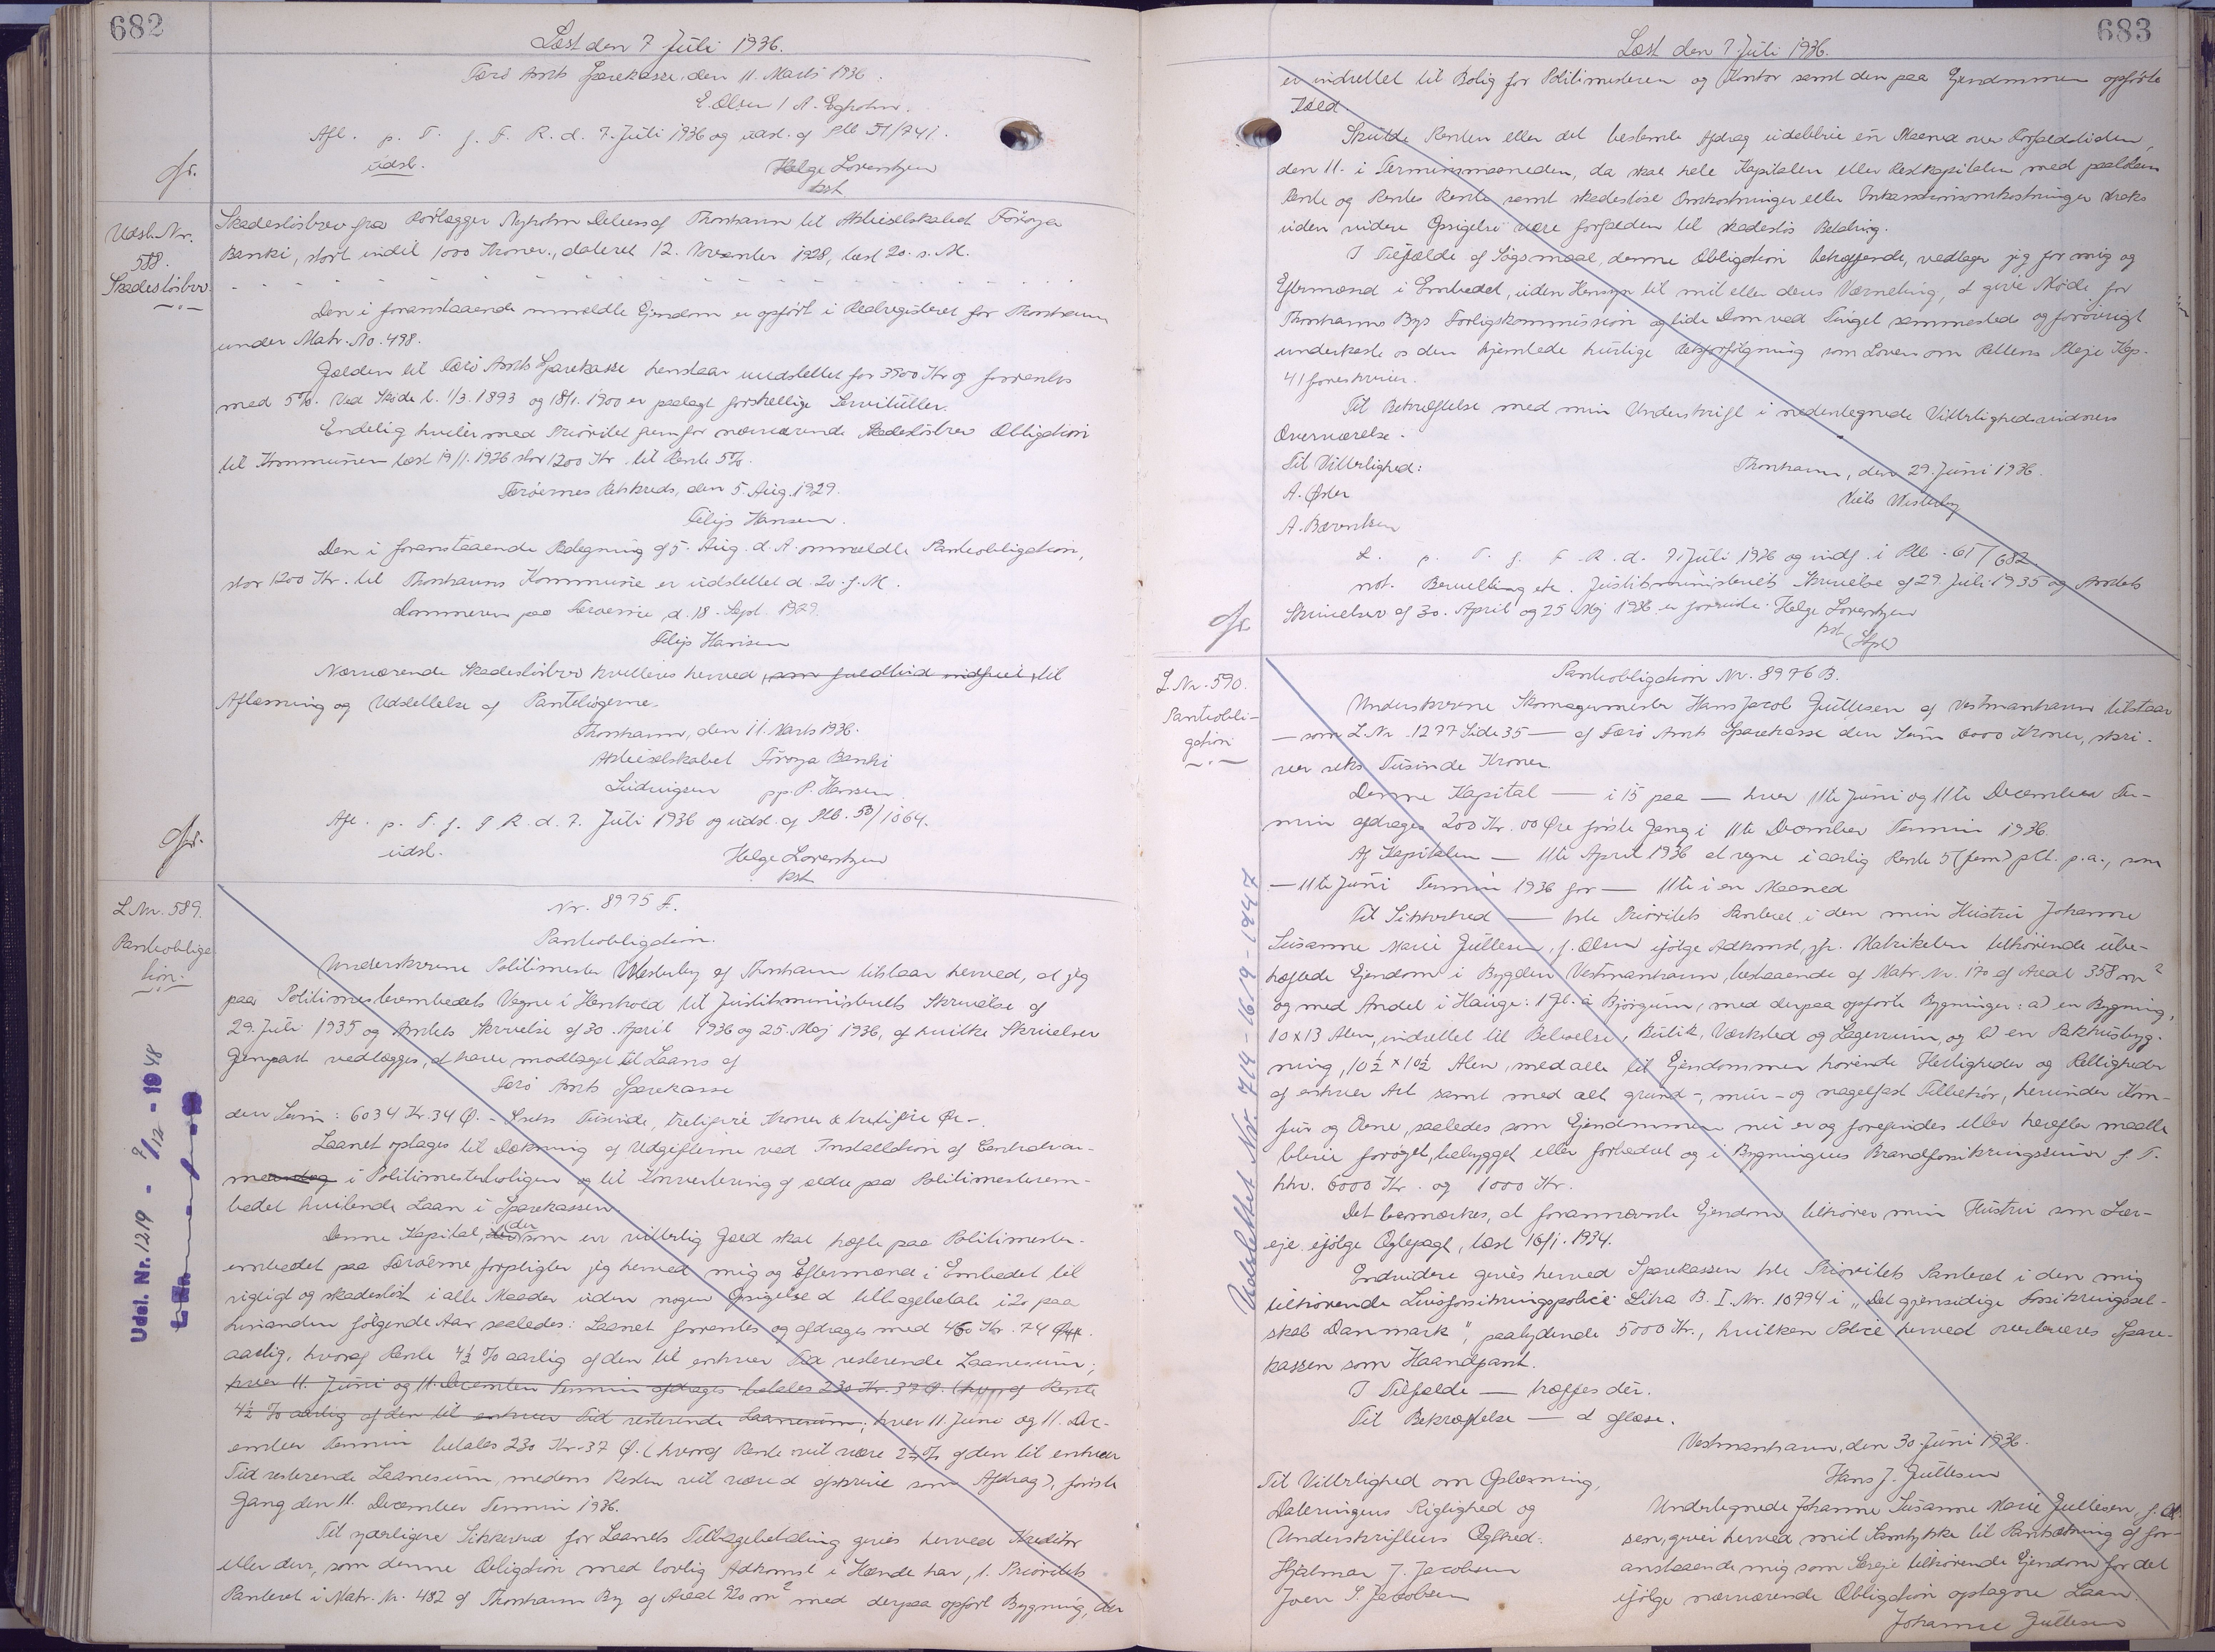 682
Læst den 7 Juli 1936.
Færø Amts Sparekasse, den 11. Marts 1936.
E. Olsen / A. Egholm.
Afl. p. T. f. F. R. d. 7. Juli 1936 og udsl. af Ptb 51/741.
udsl.
Helge Lorentzen
kst
Udsl. Nr.
588.
Skadesløsbrev.
Skadesløsbrev fra Rørlægger Nyholm Debess af Thorshavn til Aktieselskabet Føroya
Banki, stort indtil 1000 Kroner, dateret 12. November 1928, læst 20. s. M.
Den i foranstaaende ommeldte Ejendom er opført i Realregisteret for Thorshavn
under Matr. No. 498.
Gælden til Færø Amts Sparekasse henstaar uudslettet for 3500 Kr og forrentes
med 5%. Ved Skøde l. 1/3. 1893 og 18/1. 1900 er paalagt forskellige Servitutter.
Endelig hviler med Prioritet fremfor nærværende Skadesløsbrev Obligation
til Kommunen læst 19/1. 1926 stor 1200 Kr. til Rente 5%.
Færøernes Retskreds, den 5. Aug. 1929.
Filip Hansen.
Den i foranstaaende Paategning af 5. Aug. d. A. ommeldte Panteobligation,
stor 1200 Kr. til Thorshavns Kommune er udslettet d. 20. f. M.
Dommeren paa Færøerne, d. 18. Sept. 1929.
Filip Hansen
Nærværende Skadesløsbrev kvitteres herved, som fuldtud indfriet, til
Aflæsning og Udslettelse af Pantebøgerne.
Thorshavn, den 11. Marts 1936.
Aktieselskabet Føroya Banki
Ludvigsen pp. P. Hansen
Afl. p. T. f. F. R. d. 7. Juli 1936 og udsl. af Ptb. 50/1064.
udsl.
Helge Lorentzen
kst
L. Nr. 589.
Panteobliga
tion.
Nr. 8975 F.
Panteobligation.
Underskrevne Politimester Westerby af Thorshavn tilstaar herved, at jeg
paa Politimesterembedets Vegne i Henhold til Justitsministeriets Skrivelse af
29. Juli 1935 og Amtets Skrivelse af 30. April 1936 og 25. Maj 1936, af hvilke Skrivelser
Genpart vedlægges, at have modtaget til Laans af
Færø Amts Sparekasse
den Sum: 6034 Kr. 34 Ø. - Seks Tusinde, tretifire Kroner & tretifire Øre -.
Laanet optages til Dækning af Udgifterne ved Installation af Centralvar-
me i Politimesterboligen og til Konvertering af ældre paa Politimesterem-
bedet hvilende Laan i Sparekassen
Denne Kapital, der som en vitterlig Gæld skal hæfte paa Politimester-
embedet paa Færøerne forpligter jeg herved mig og Eftermænd i Embedet til
rigtigt og skadesløst i alle Maader uden nogen Opsigelse at tilbagebetale i 20 paa
hinanden følgende Aar saaledes: Laanet forrentes og afdrages med 460 Kr. 74 Øre
aarlig, hvoraf Rente 4½ % aarlig af den til enhver Tid resterende Laanesum;
hver 11. Juni og 11. December Termin afdrages betales 230 Kr. 37 Ø. (hvoraf Rente
4½ % aarlig af den til enhver Tid resterende Laanesum; hver 11. Juni og 11. Dec-
ember Termin betales 230 Kr. 37 Ø. (hvoraf Rente vil være 2¼ % af den til enhver
Tid resterende Laanesum, medens Resten vil være at afskrive som Afdrag), første
Gang den 11. December Termin 1936.
Til yderligere Sikkerhed for Laanets Tilbagebetaling gives herved Kreditor
eller den, som denne Obligation med lovlig Adkomst i Hænde har, 1. Prioritets
Panteret i Matr. Nr. 482 af Thorshavn By af Areal 720 m² med derpaa opført Bygning, der
Udsl. Nr. 1219 - 9/12 - 1948
683
Læst den 7. Juli 1936.
er indrettet til Bolig for Politimesteren og Kontor samt den paa Ejendommen opførte
Stald.
Skulde Renten eller det bestemte Afdrag udeblive en Maaned over Forfaldstiden,
den 11. i Terminsmaaneden, da skal hele Kapitalen eller Restkapitalen med paaløben
Rente og Rentes Rente samt skadesløse Omkostninger eller Inkassationsomkostninger straks
uden videre Opsigelse være forfalden til skadesløs Betaling.
I Tilfælde af Søgsmaal, denne Obligation betræffende, vedtager jeg for mig og
Eftermænd i Embedet, uden Hensyn til mit eller deres Værneting, at give Møde for
Thorshavns Bys Forligskommission og lide Dom ved Tinget sammesteds og forøvrigt
underkaste os den hjemlede hurtige Retsforfølgning som Loven om Rettens Pleje Kap.
41 foreskriver.
Til Bekræftelse med min Underskrift i nedentegnede Vitterlighedsvidners
Overværelse.
Til Vitterlighed:
A. Øster
A. Bærentsen
Thorshavn, den 29. Juni 1936.
Niels Westerby
L. p. T. f. F. R. d. 7. Juli 1936 og indf. i Ptb. 61/682
not. Bevilling etc. Justitsministeriets Skrivelse af 29. Juli 1935 og Amtets
Skrivelser af 30. April og 25. Maj 1936 er forevist. Helge Lorentzen
kst (Stpl)
L. Nr. 590.
Panteobli-
gation
Panteobligation Nr. 8976 B.
Underskrevne Skomagermester Hans Jacob Jullesen af Vestmanhavn tilstaar
— som L. Nr. 1277 Side 35 — af Færø Amts Sparekasse den Sum 6000 Kroner, skri-
ver seks Tusinde Kroner.
Denne Kapital — i 15 paa — hver 11te Juni og 11te December Ter-
min afdrages 200 Kr. 00 Øre første Gang i 11te December Termin 1936.
Af Kapitalen — 11te April 1936 at regne i aarlig Rente 5 (fem) pCt. p. a., som
— 11te Juni Termin 1936 for — 11te i en Maaned
Til Sikkerhed — 1ste Prioritets Panteret i den min Hustru Johanne
Susanne Marie Jullesen, f. Olsen ifølge Adkomst, jfr. Matrikelen tilhørende ube-
hæftede Ejendom i Bygden Vestmanhavn, bestaaende af Matr. Nr. 170 af Areal 358 m²
og med Andel i Hauge: 1 Gl. á Bjørgum, med derpaa opførte Bygninger: a) en Bygning,
10 x 13 Alen, indrettet til Beboelse, Butik, Værksted og Lagerrum, og b) en Pakhusbyg-
ning, 10½ x 10½ Alen, med alle til Ejendommen hørende Herligheder og Rettigheder
af enhver Art samt med alt grund-, mur- og nagelfast Tilbehør, herunder Kom-
fur og Ovne, saaledes som Ejendommen nu er og forefindes eller herefter maatte
blive forøget, bebygget eller forbedret og i Bygningens Brandforsikringssummer f. T.
hhv. 6000 Kr. og 1000 Kr.
Det bemærkes, at forannævnte Ejendom tilhører min Hustru som Sær-
eje ifølge Ægtepagt, læst 16/1. 1934.
Endvidere gives herved Sparekassen 1ste Prioritets Panteret i den mig
tilhørende Livsforsikringspolice Litra B. I. Nr. 10994 i "Det gjensidige Forsikringssel-
skab Danmark", paalydende 5000 Kr., hvilken Police herved overleveres Spare-
kassen som Haandpant.
I Tilfælde — træffes dér.
Til Bekræftelse — at aflæse.
Vestmanhavn, den 30. Juni 1936.
Hans J. Jullesen
Til Vitterlighed om Oplæsning,
Dateringens Rigtighed og
Underskriftens Ægthed:
Hjalmar J. Jacobsen
Joen S. Jacobsen
Undertegnede Johanne Susanne Marie Jullesen, f. Ol-
sen, giver herved mit Samtykke til Pantsætning af for-
anstaaende mig som Særeje tilhørende Ejendom for det
ifølge nærværende Obligation optagne Laan.
Johanne Jullesen
Udslettet Nr. 714 - 16/9 - 1947